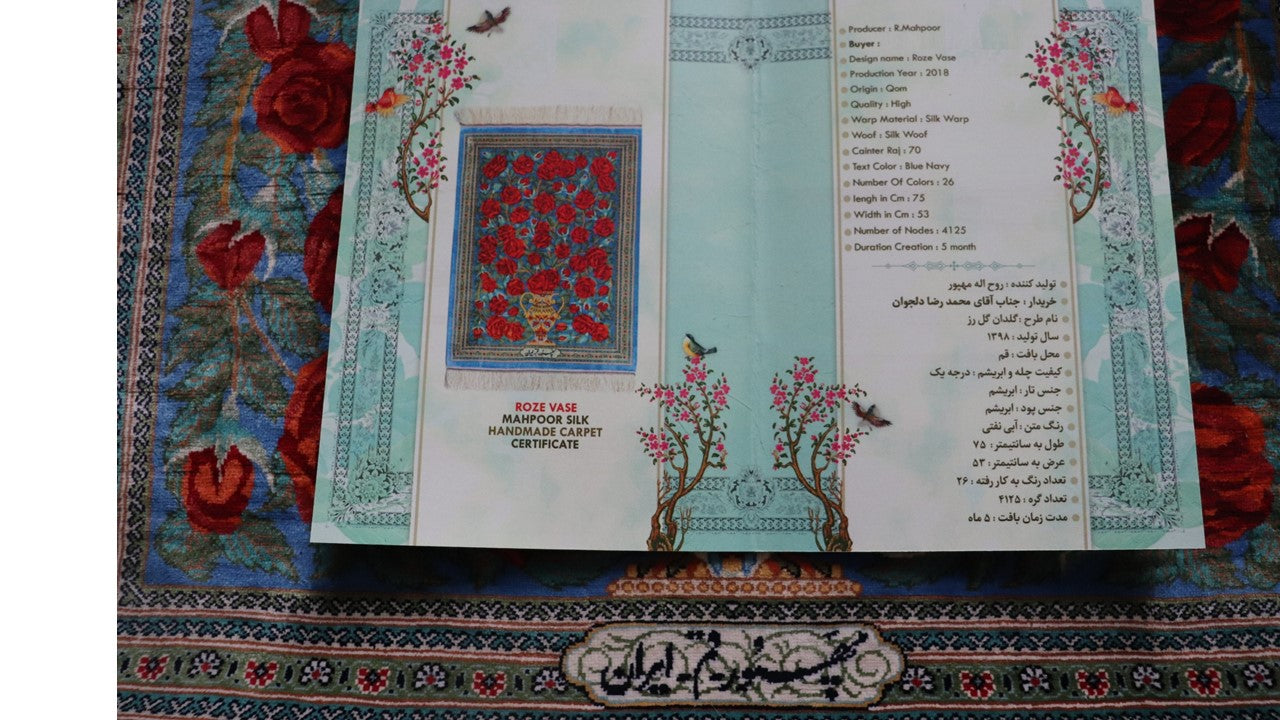 ROZE VASE
MAHPOOR SILK
HANDMADE CARPET
CERTIFICATE
Producer : R.Mahpoor
Buyer :
Design name : Roze Vase
Production Year : 2018
Origin : Qom
Quality : High
Warp Material : Silk Warp
Woof : Silk Woof
Cainter Raj : 70
Text Color : Blue Navy
Number Of Colors : 26
lengh in Cm : 75
Width in Cm : 53
Number of Nodes : 4125
Duration Creation : 5 month
تولید کننده : روح اله مهپور
خریدار : جناب آقای محمد رضا دلجوان
نام طرح : گلدان گل رز
سال تولید : ۱۳۹۸
محل بافت : قم
کیفیت چله و ابریشم : درجه یک
جنس تار : ابریشم
جنس پود : ابریشم
رنگ متن : آبی نفتی
طول به سانتیمتر : ۷۵
عرض به سانتیمتر : ۵۳
تعداد رنگ به کار رفته : ۲۶
تعداد گره : ۴۱۲۵
مدت زمان بافت : ۵ ماه
قم - ایران